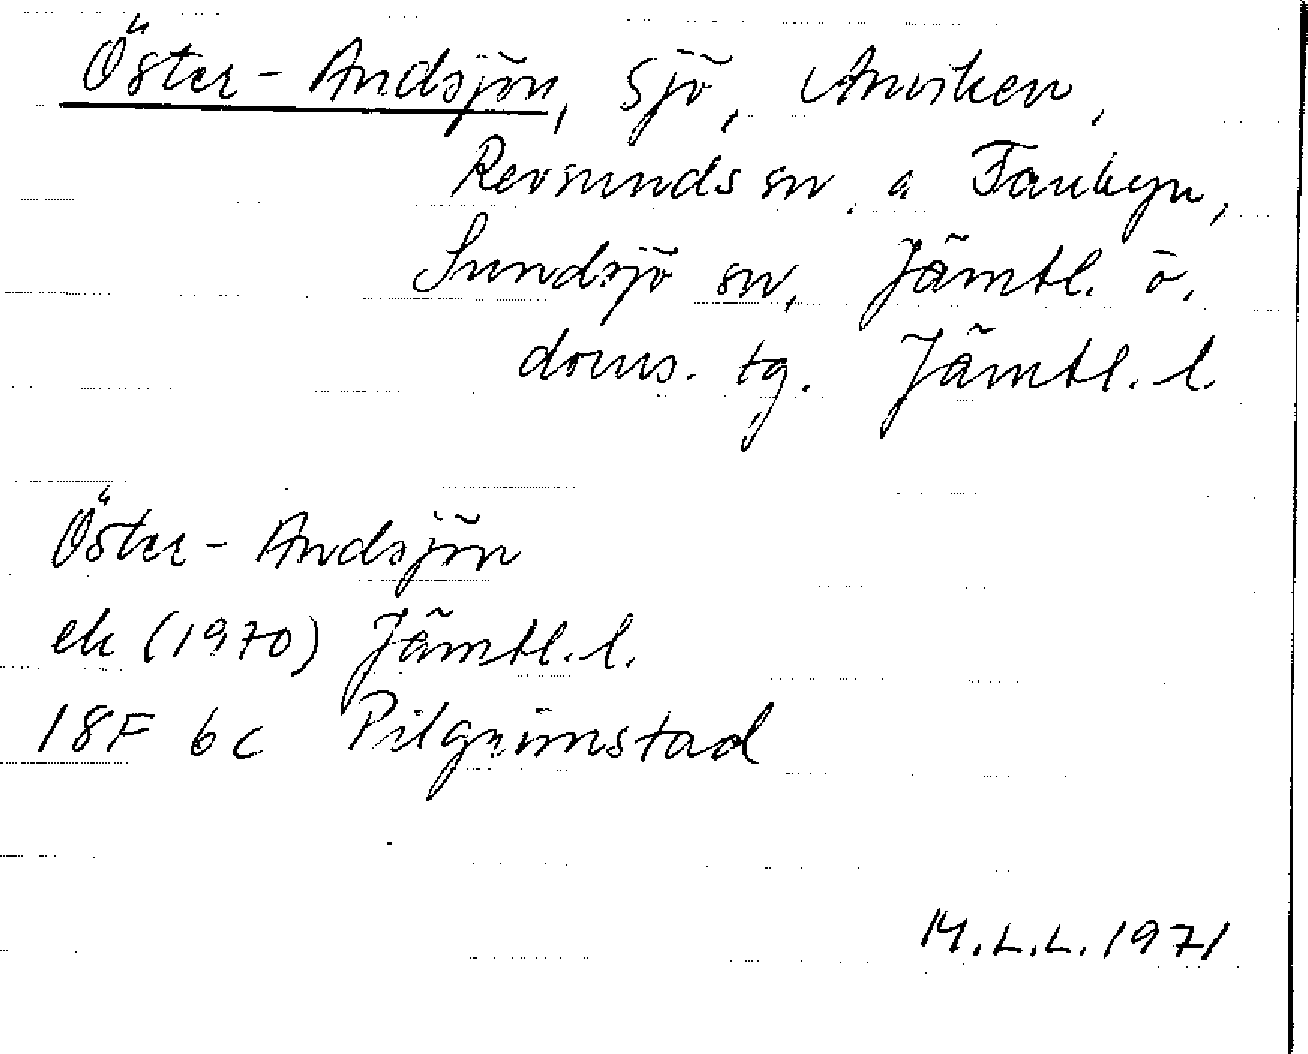 Öster-Andsjön, sjö, Anviken,
Revsunds sn. a Fanbyn,
Sundsjö sn, Jämtl. ö.
doms. tg. Jämtl. l
Öster-Andsjön
ek (1970) Jämtl. l.
18F 6c Pilgrimstad
M.L.L. 1971